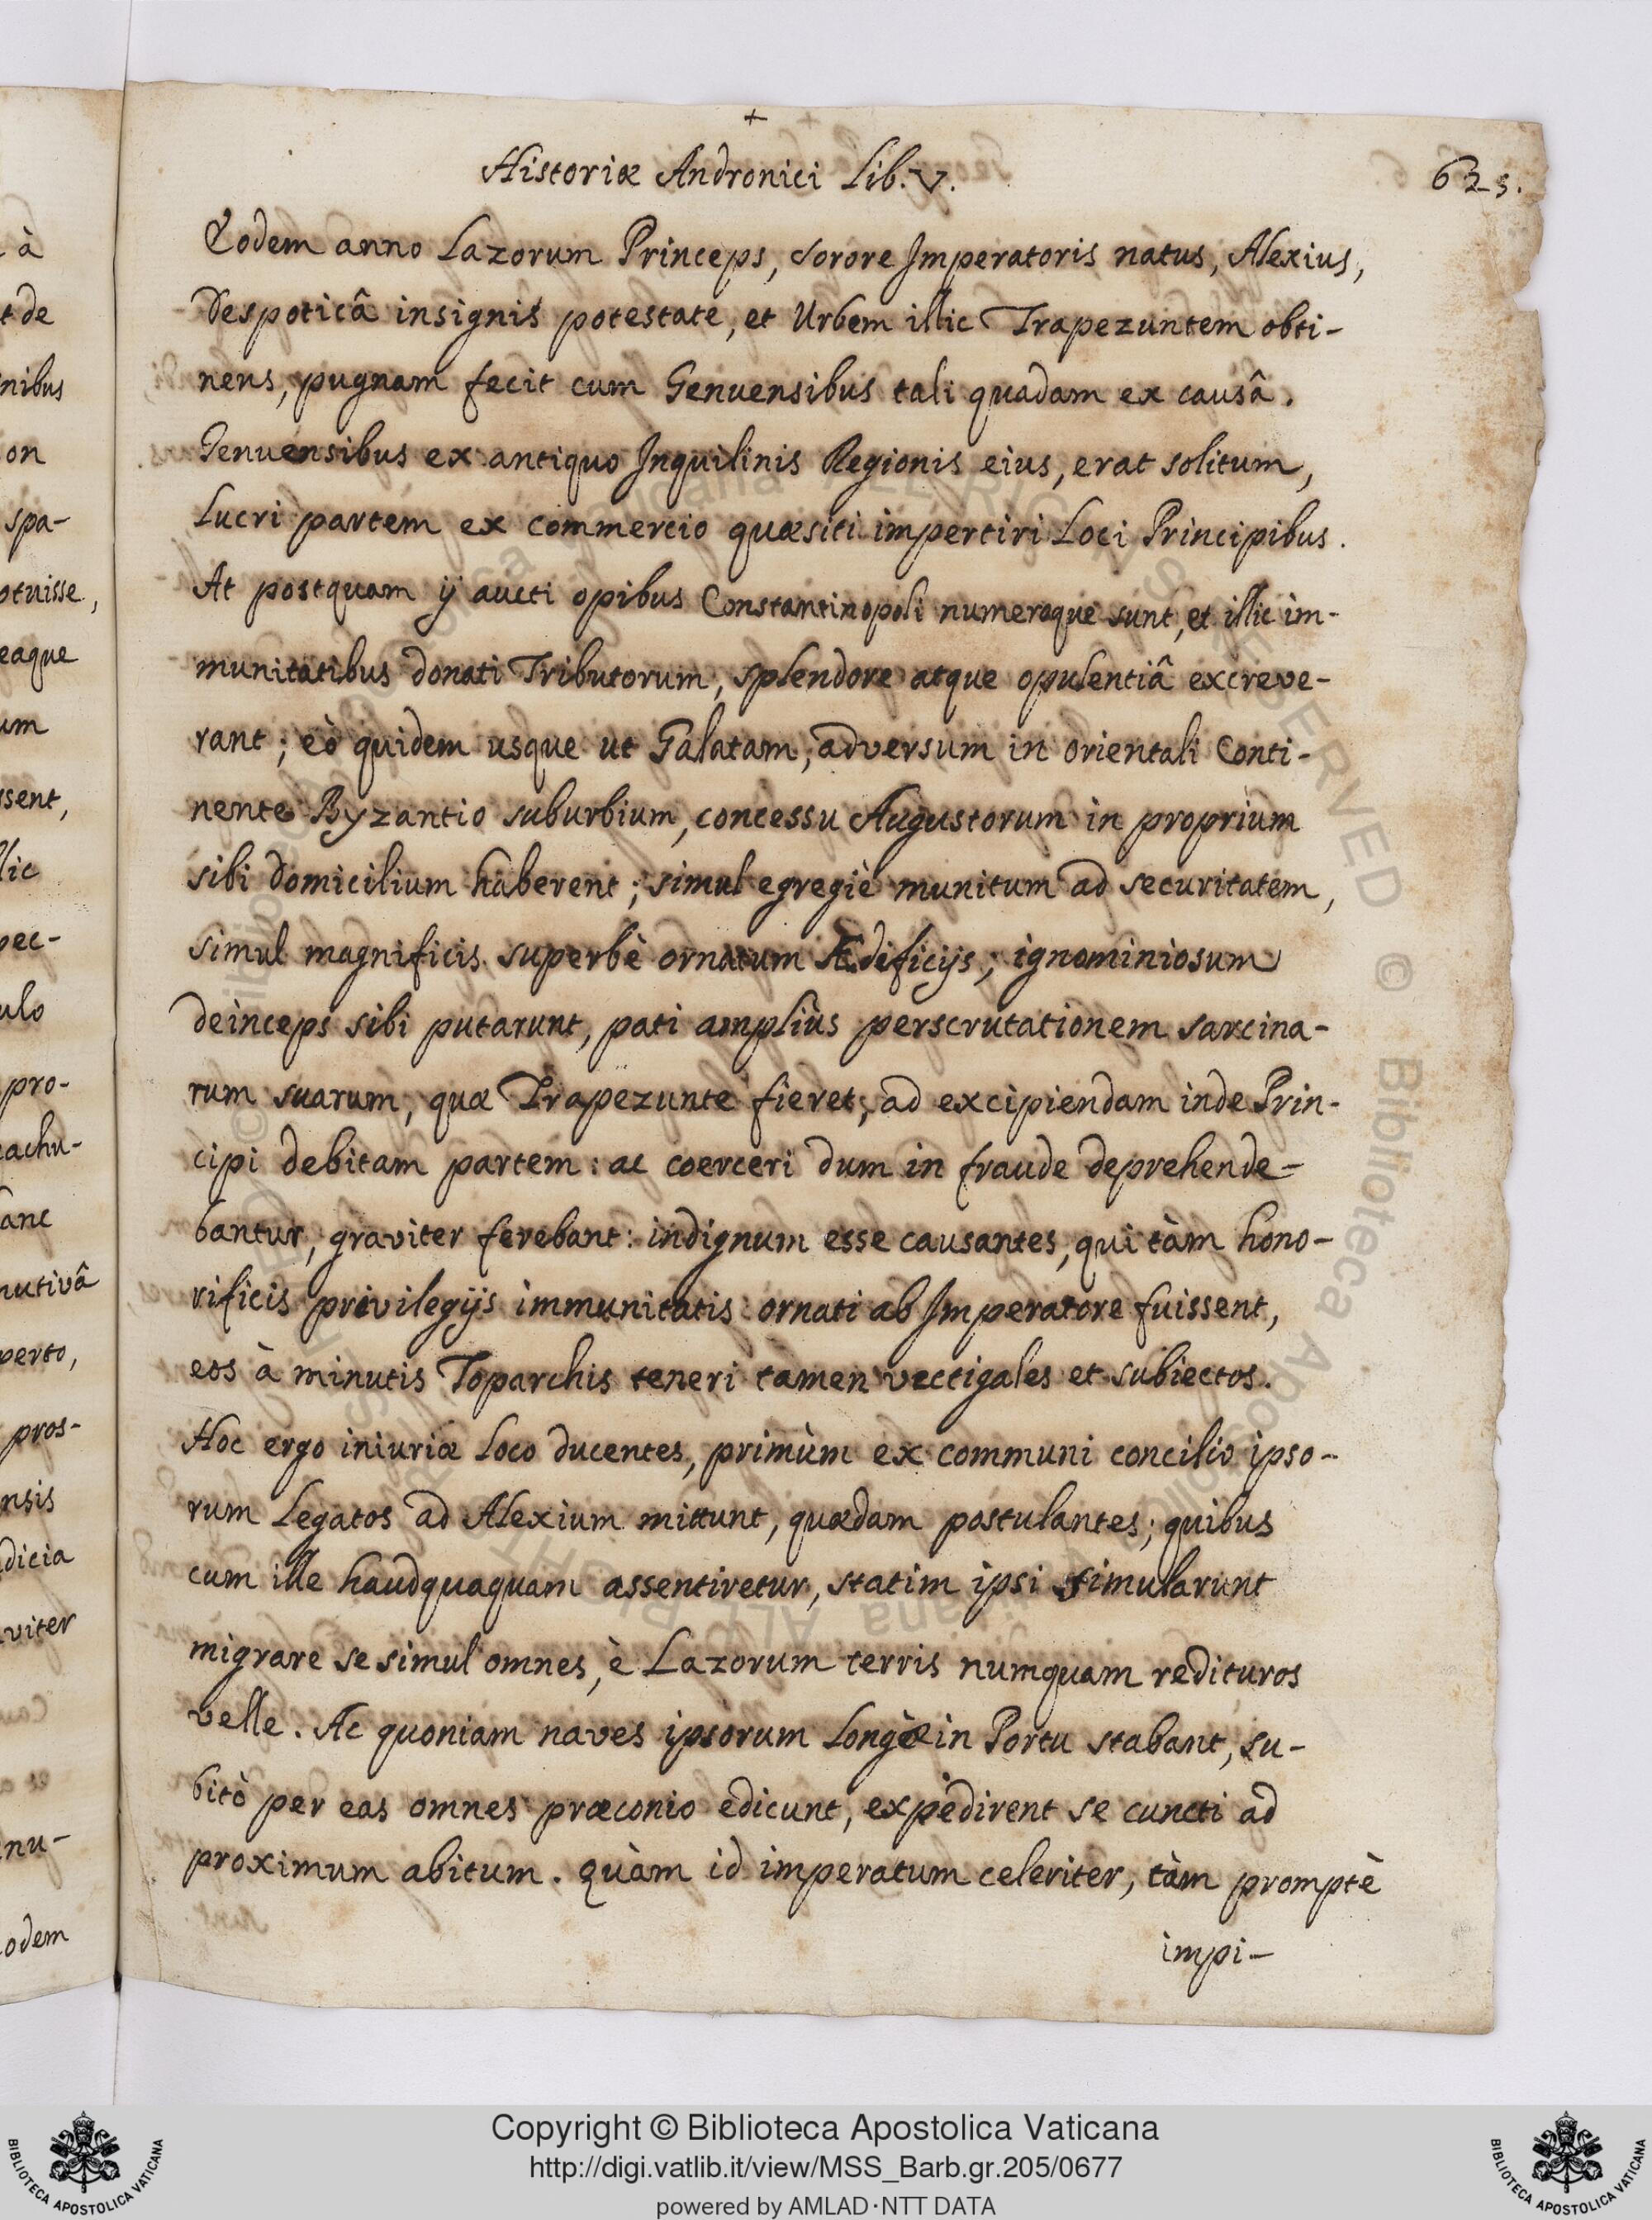 +
Historiæ Andronici Lib. V.
625.
Eodem anno Lazorum Princeps, sorore Imperatoris natus, Alexius,
Despoticâ insignis potestate, et Urbem illic Trapezuntem obti-
nens, pugnam fecit cum Genuensibus tali quadam ex causâ.
Genuensibus ex antiquo Inquilinis Regionis eius, erat solitum,
Lucri partem ex commercio quæsiti impertiri Loci Principibus.
At postquam ij aucti opibus Constantinopoli numeroque sunt, et illic im-
munitatibus donati Tributorum, splendore atque opulentiâ excreve-
rant; eò quidem usque ut Galatam, adversum in orientali Conti-
nente Byzantio suburbium, concessu Augustorum in proprium
sibi domicilium haberent; simul egregiè munitum ad securitatem,
simul magnificis superbè ornatum Ædificijs; ignominiosum
deinceps sibi putarunt, pati ampliùs perscrutationem sarcina-
rum suarum, quæ Trapezunte fieret, ad excipiendam inde Prin-
cipi debitam partem: ac coerceri dum in fraude deprehende-
bantur, graviter ferebant: indignum esse causantes, qui tàm hono-
rificis privilegijs immunitatis ornati ab Imperatore fuissent,
eos à minutis Toparchis teneri tamen vectigales et subiectos.
Hoc ergo iniuriæ loco ducentes, primùm ex communi concilio ipso-
rum Legatos ad Alexium mittunt, quædam postulantes; quibus
cum ille haudquaquam assentiretur, statim ipsi simularunt
migrare se simul omnes, è Lazorum terris numquam redituros
velle. Ac quoniam naves ipsorum Longæ in Portu stabant, su-
bitò per eas omnes præconio edicunt, expedirent se cuncti ad
proximum abitum. quàm id imperatum celeriter, tàm promptè
impi-
à
t de
nibus
on
spa-
otuisse,
eaque
um
ssent,
llic
pec-
ulo
pro-
achu-
anc
nutivâ
perto,
pros-
nsis
dicia
viter
nu-
odem
Copyright © Biblioteca Apostolica Vaticana
http://digi.vatlib.it/view/MSS_Barb.gr.205/0677
powered by AMLAD·NTT DATA
BIBLIOTECA APOSTOLICA VATICANA
BIBLIOTECA APOSTOLICA VATICANA